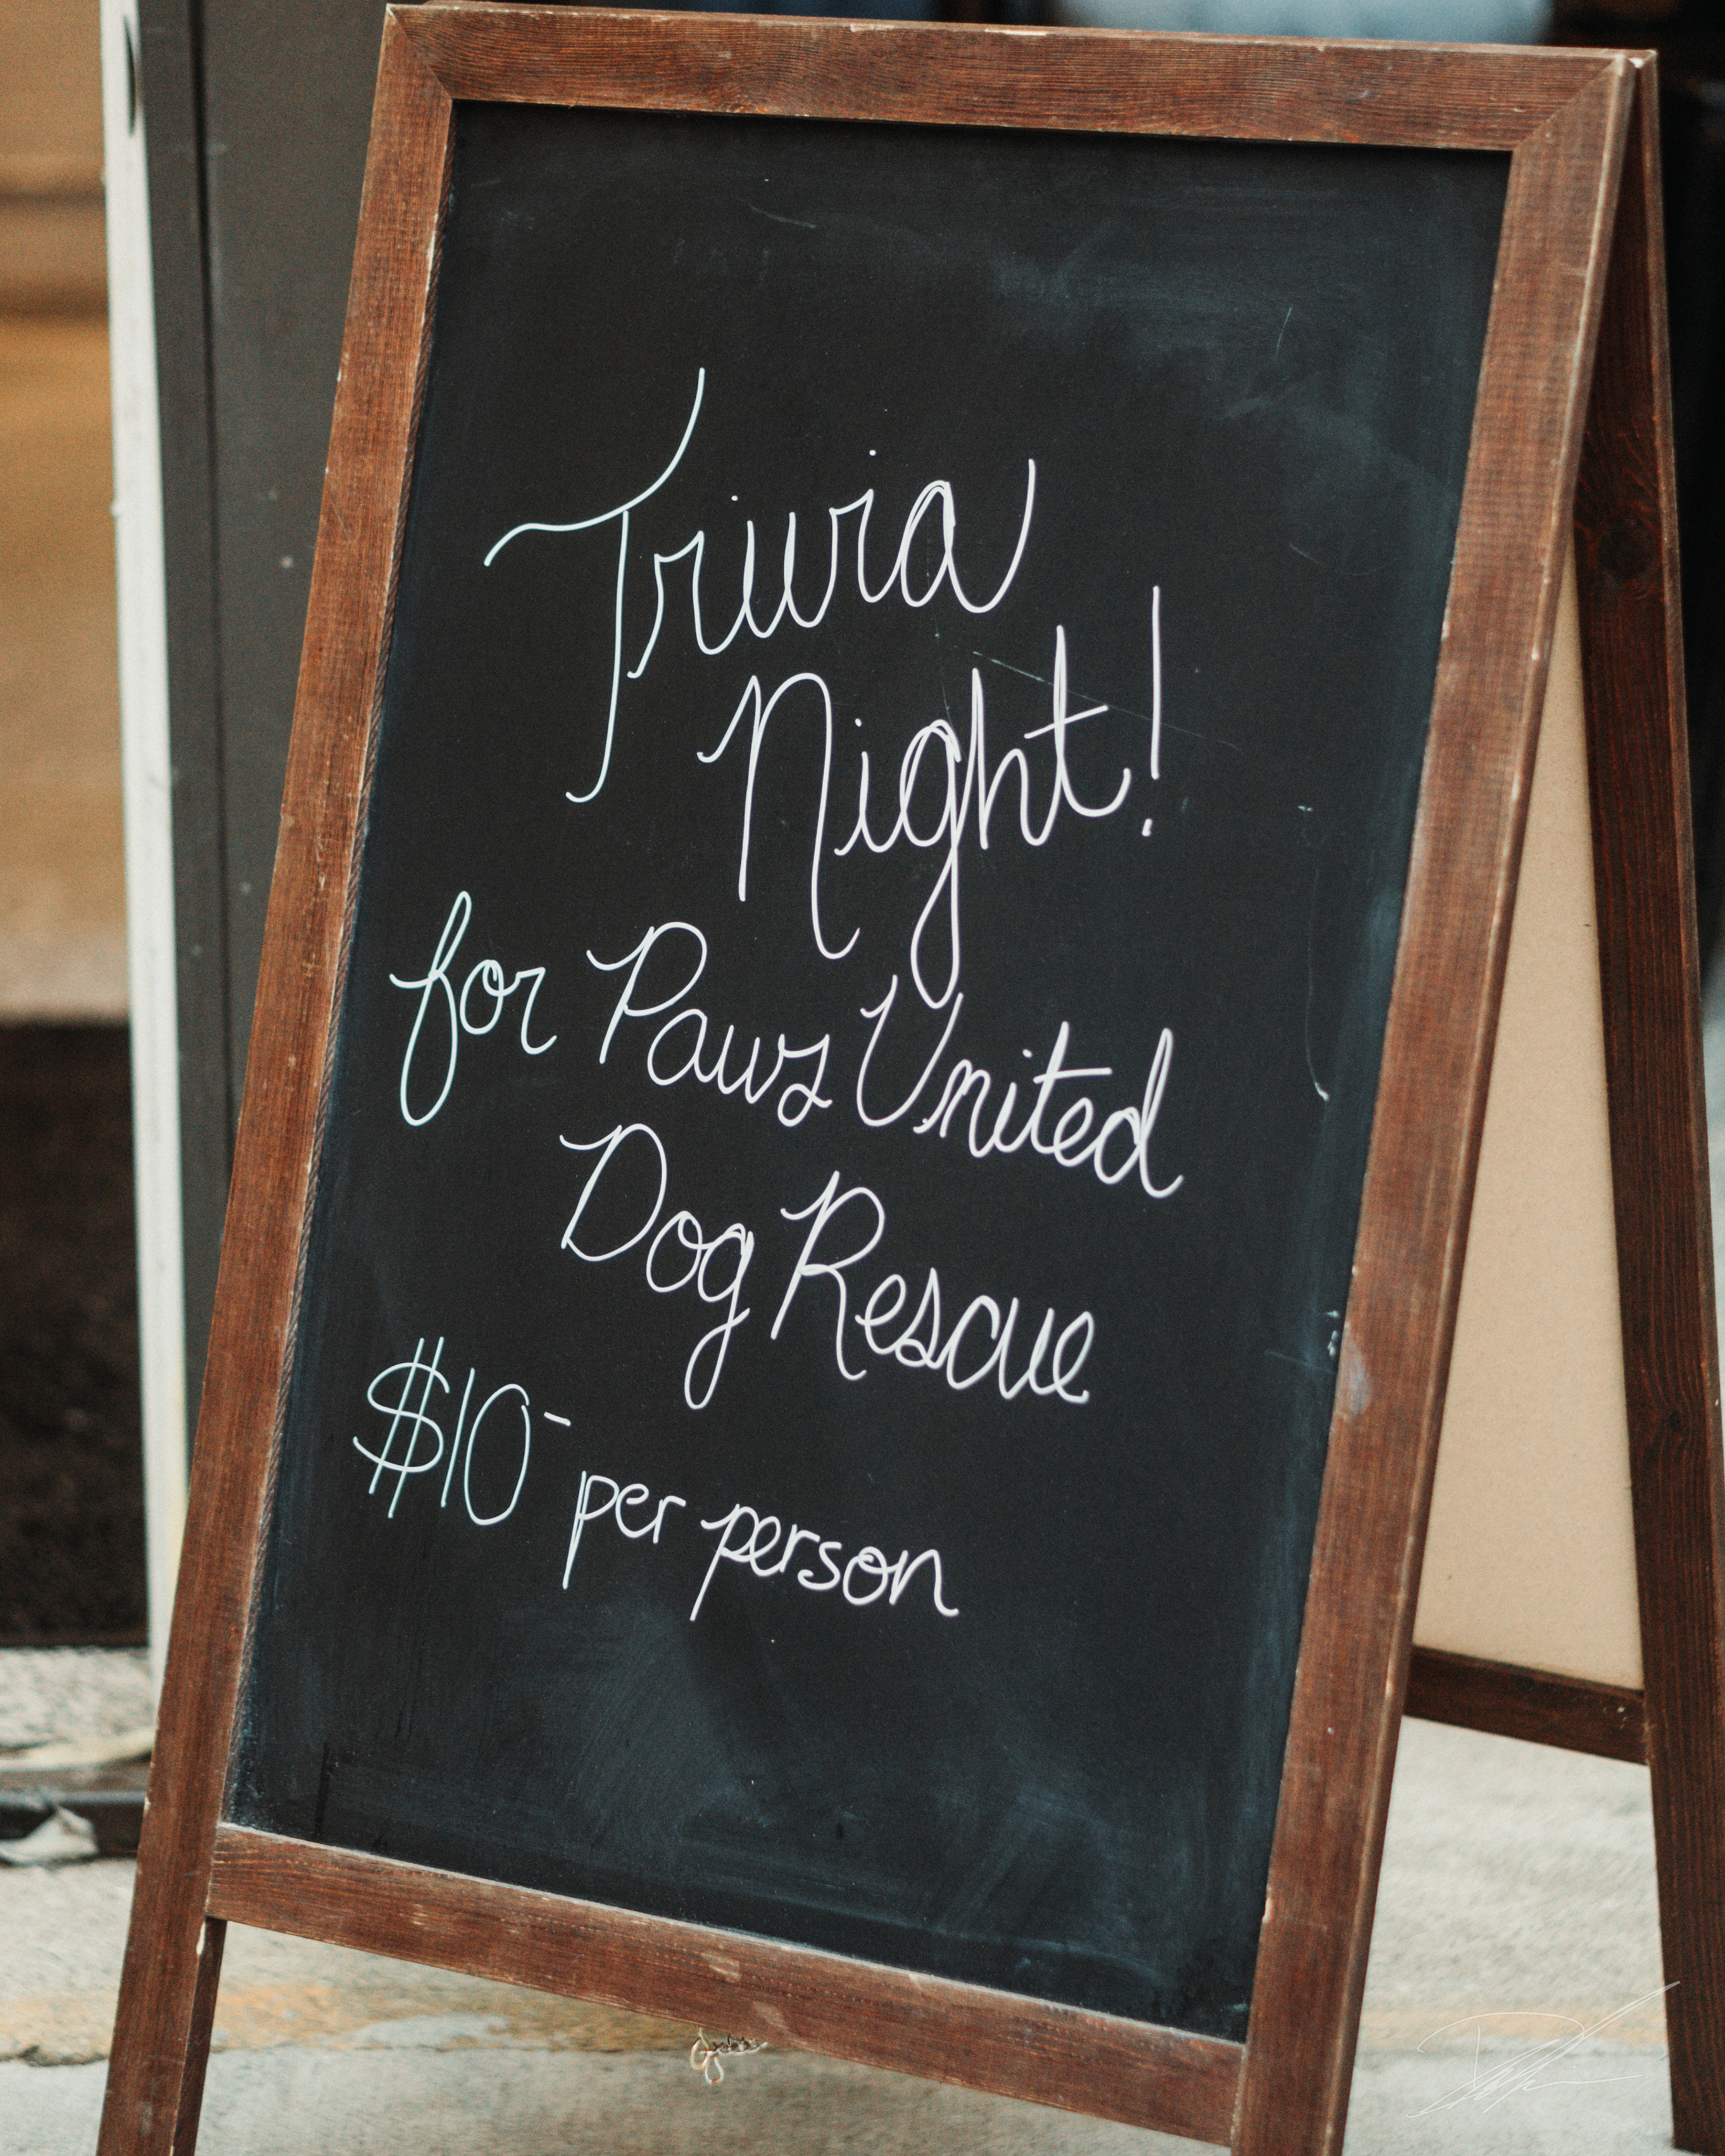 Trivia
Night!
for Paws United
Dog Rescue
$10- per person